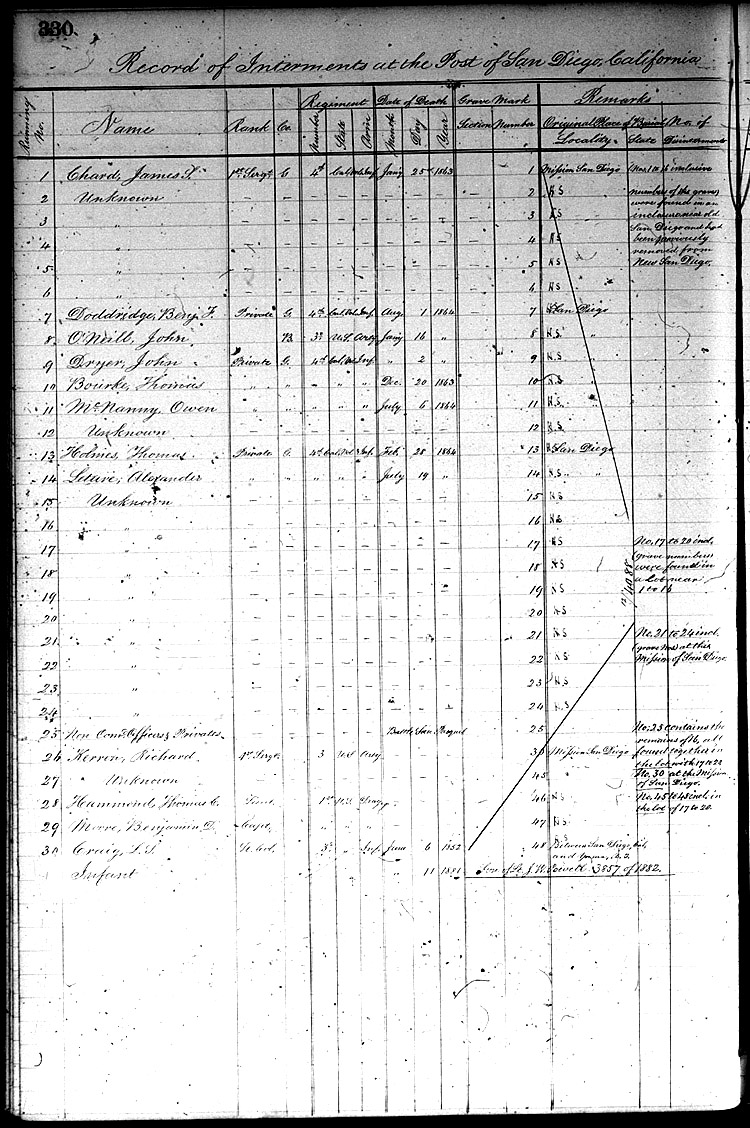 330.
Record of Interments at the Post of San Diego, California
Running No. Name Rank Co. Regiment Number State Arm Date of Death Month Day Year Grave Mark Section Number Remarks Original Place of Burial Locality State No. of Disinterment
1 Chard, James S. 1st Sergt G 4th Cal. Vols Inf Jany 25th 1863 1 Mission San Diego Nos. 1 to 16 inclusive
2 Unknown — — — — — — — — 2 N.S numbers of the graves
were found in an
3 " — — — — — — — — 3 N.S enclosure near old
San Diego and had
4 " — — — — — — — — 4 N.S been previously
removed from
5 " — — — — — — — — 5 N.S New San Diego.
6 " — — — — — — — — 6 N.S
7 Doddridge, Benj. F. Private G. 4th Cal. Vol. Inf. Aug. 1 1864 7 San Diego
8 O'Neill, John B. 3d U.S. Arty Jany 16 " 8 N.S. "
9 Dryer, John Private G. 4th Cal. Vol. Inf. " 2 " 9 N.S "
10 Bourke, Thomas " " " " " Dec. 20 1863 10 N.S
11 McNanny, Owen " " " " " July 6 1864 11 N.S. "
12 Unknown — — — — — — — — 12 N.S
13 Holmes, Thomas Private G. 4th Cal. Vol. Inf. Feb. 28 1864 13 San Diego
14 Alexander " " " " " July 19 " 14 N.S. "
15 Unknown — — — — — — — — 15 N.S
16 " — — — — — — — — 16 N.S
17 " — — — — — — — — 17 N.S No. 17 to 20 incl.
(grave numbers)
18 " — — — — — — — — 18 N.S were found in
a lot near
19 " — — — — — — — — 19 N.S 1 to 16
20 " — — — — — — — — 20 N.S
21 " — — — — — — — — 21 N.S No. 21 to 24 incl.
(grave Nos) at the
22 " — — — — — — — — 22 N.S Mission of San Diego.
23 " — — — — — — — — 23 N.S
24 " — — — — — — — — 24 N.S
25 Non Com. Officers & Privates Battle San Pasqual 25 No. 25 contains the
remains of 16, all
26 Kerren, Richard 1st Sergt 3 U.S Arty 30 Mission San Diego found together in
the lot with 17 to 20
27 Unknown 45 " No. 30 at the Mission
of San Diego.
28 Hammond, Thomas C. Lieut. 1st U.S. Drag. 46 N.S No. 45 to 48 incl. in
the lot of 17 to 20.
29 Moore, Benjamin D. Capt. " " " 47 N.S
30 Craig, L.S. Lt. Col. 3d " Inf. June 6 1852 48 Between San Diego, Cal.
and Yuma, A.T.
Infant " 11 1881 Son of Lt. J. W. Powell 3857 of 1882.